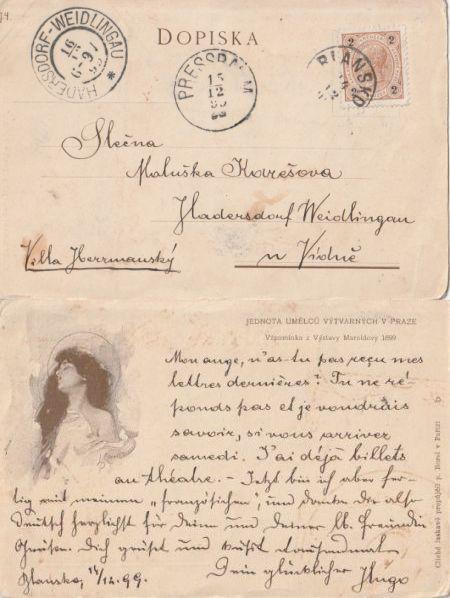 DOPISKA
HADERSDORF-WEIDLINGAU
PRESSBAUM
15
12
99
BLANSKO
2 2
2 2
Slečna
Maluška Karešova
Hadersdorf Weidlingau
Villa Herrmanský u Vídně
JEDNOTA UMĚLCŮ VÝTVARNÝCH V PRAZE
Vzpomínka z Výstavy Maroldovy 1899
Mon ange, n'as-tu pas reçu mes
lettres dernières? Tu ne ré-
ponds pas et je voudrais
savoir, si vous arrivez
samedi. J'ai déjà billets
au théatre. - Jetzt bin ich aber fer-
tig mit meinem „französischen", und danke dir also
deutsch herzlichst für Deine und deiner lb. Freundin
Grüsse. Dich grüsst und küsst tausendmal
Dein glücklicher Hugo
Blansko, 14/12.99.
Cliché laskavě propůjčil p. Borel v Paříži